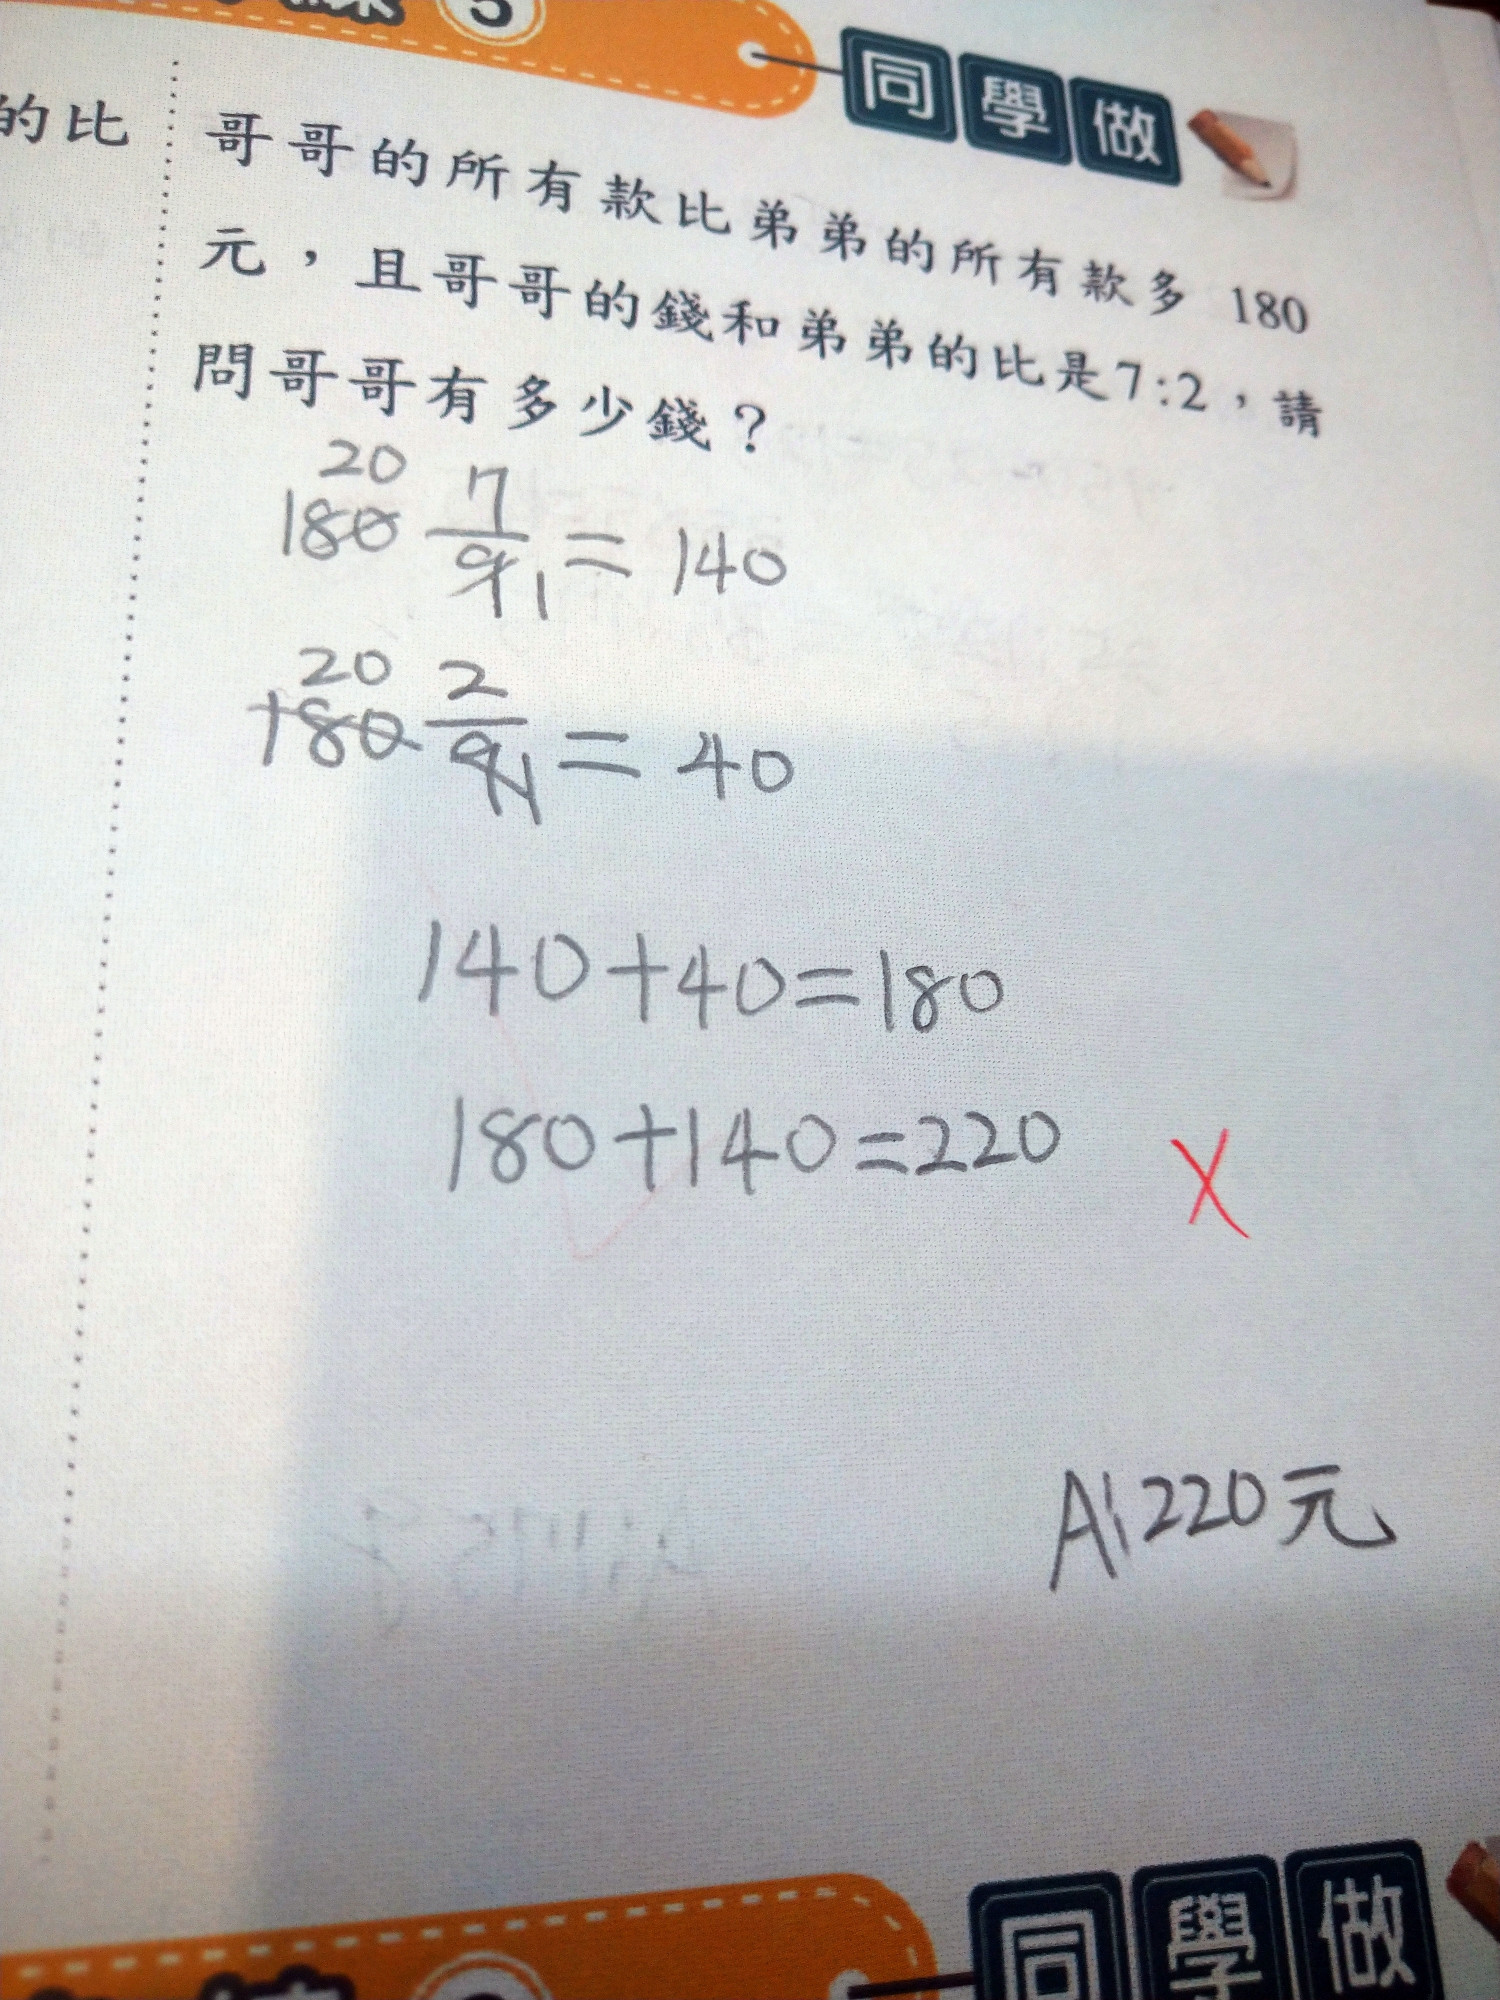 5
同學做
的比
哥哥的所有款比弟弟的所有款多 180
元，且哥哥的錢和弟弟的比是7:2，請
問哥哥有多少錢？
20
180 7/9 1 = 140
20
180 2/9 1 = 40
140+40=180
180+140=220 X
A: 220元
同學做